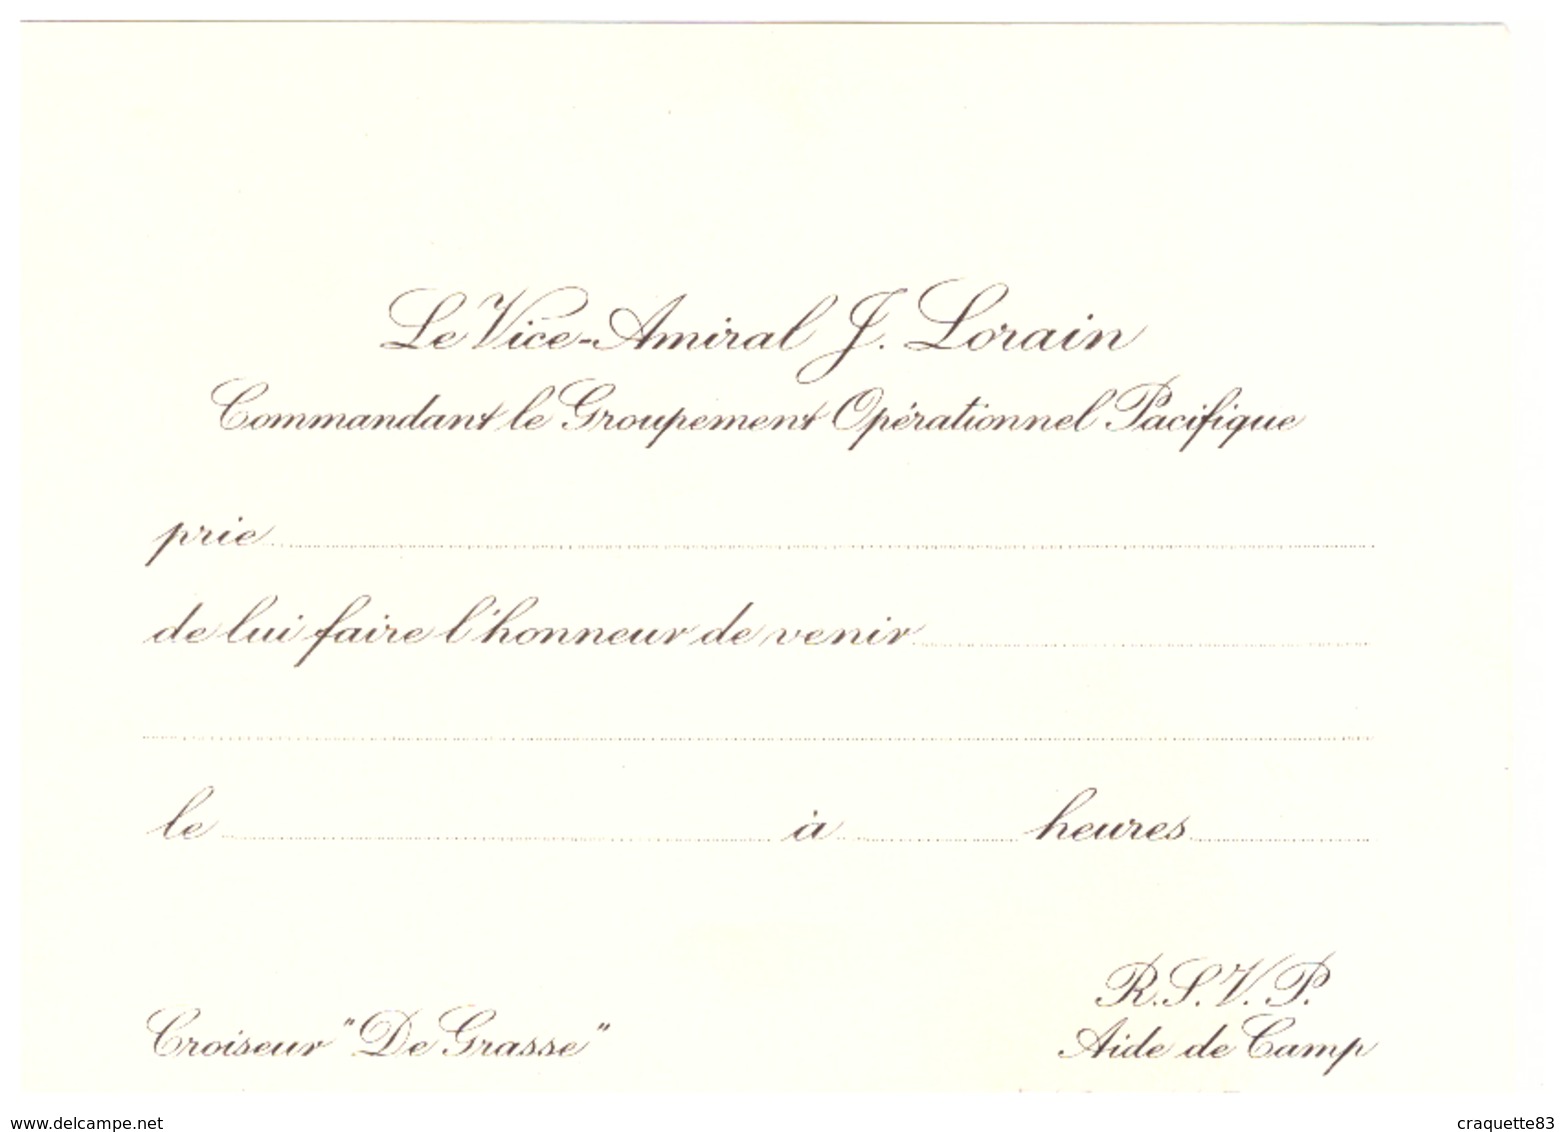 Le Vice-Amiral J. Lorain
Commandant le Groupement Opérationnel Pacifique
prie
de lui faire l'honneur de venir
le à heures
R.S.V.P.
Croiseur "De Grasse" Aide de Camp
www.delcampe.net craquette83